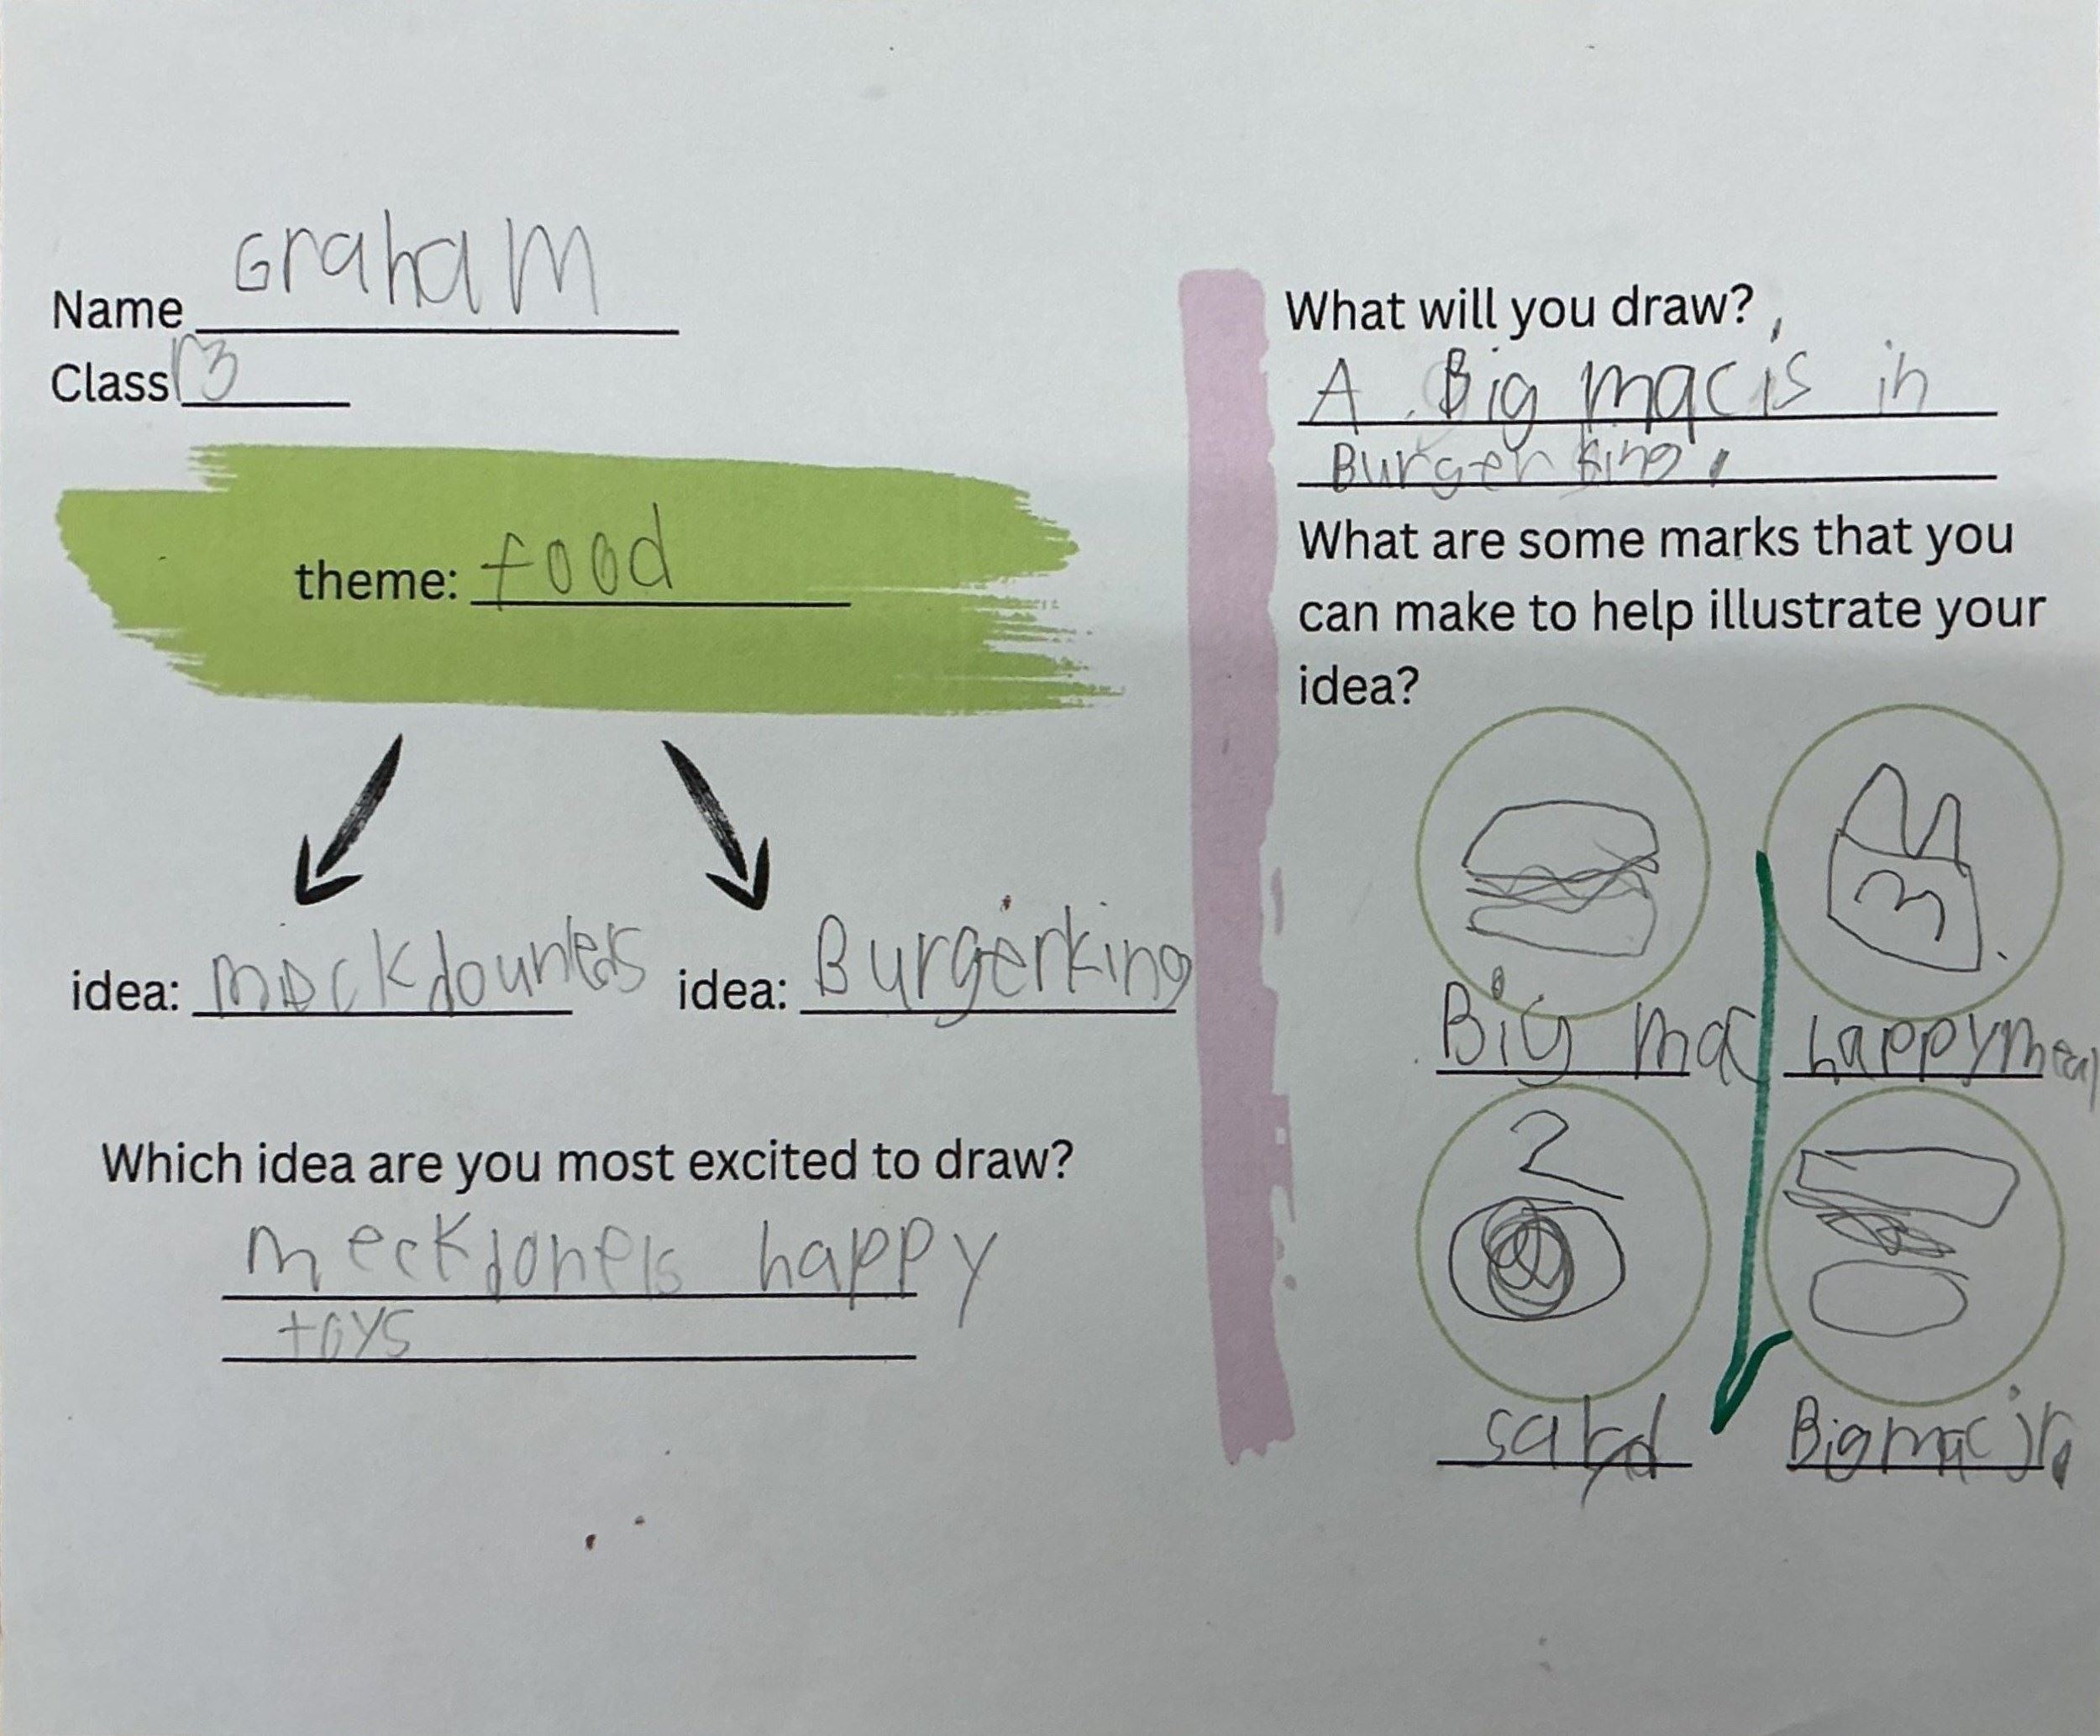 Name Graham
Class 13
theme: food
idea: mDckdounles idea: Burgerking
Which idea are you most excited to draw?
meckdonels happy
toys
What will you draw?
A Big mac is in
Burger king.
What are some marks that you
can make to help illustrate your
idea?
m
Big mac happymeal
2
Bigmac jr.